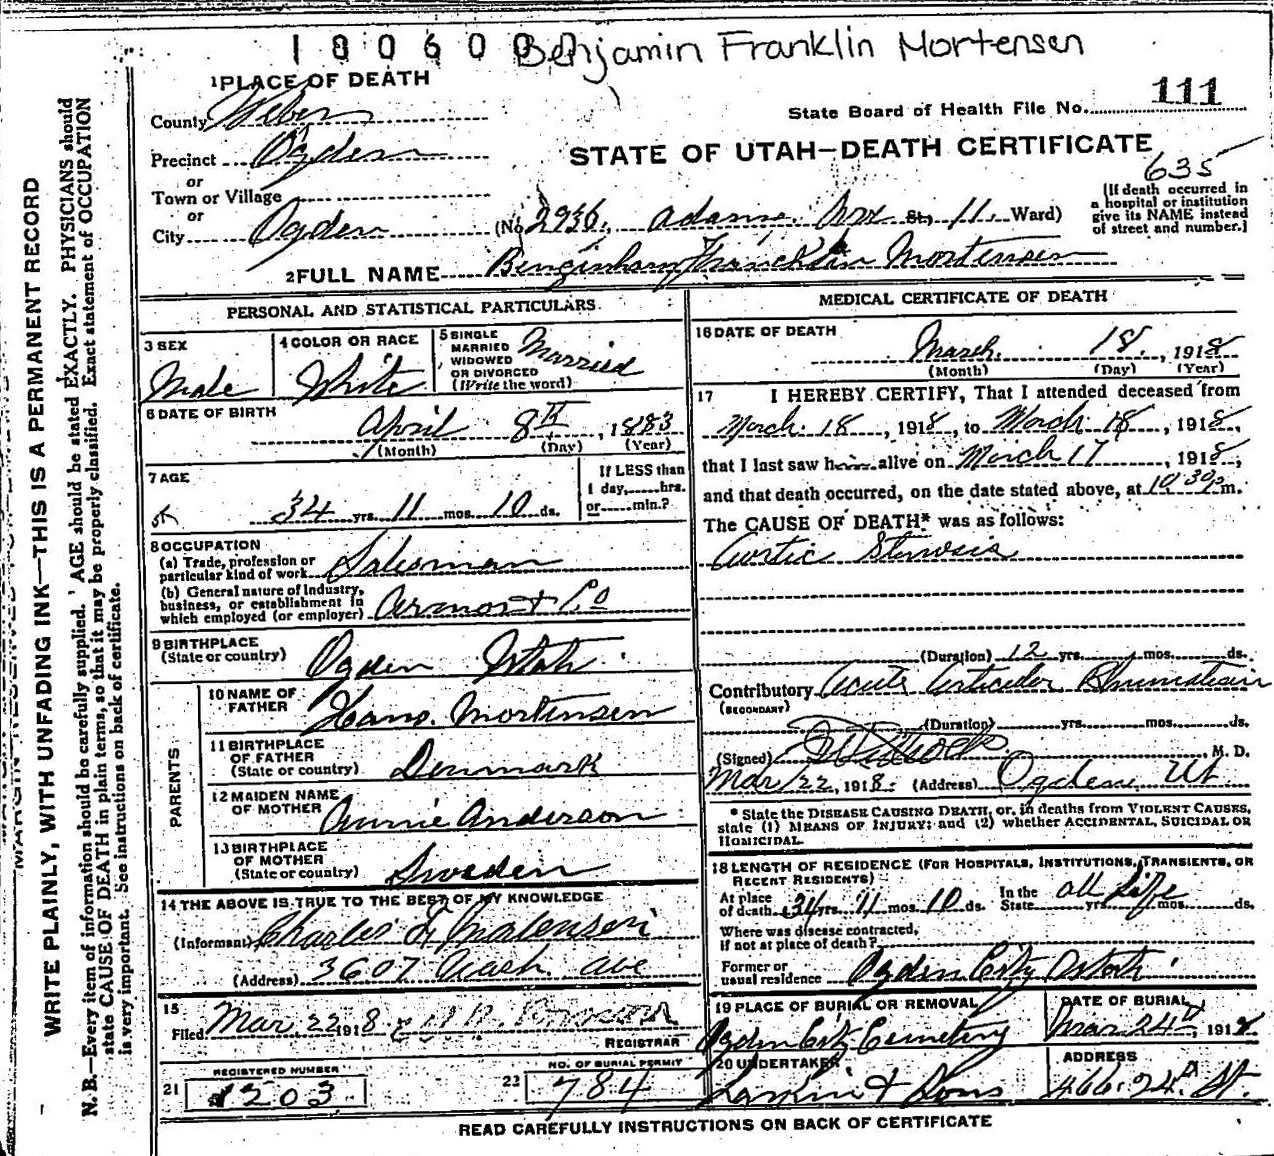 180600 Benjamin Franklin Mortensen
1 PLACE OF DEATH
State Board of Health File No. 111
County Weber
STATE OF UTAH—DEATH CERTIFICATE
Precinct Ogden
635
or
Town or Village
or
City Ogden (No. 2936. Adams. Ave St., 11. Ward)
(If death occurred in
a hospital or institution
give its NAME instead
of street and number.)
2 FULL NAME Benginham Francklin Mortensen
PERSONAL AND STATISTICAL PARTICULARS
3 SEX Male
4 COLOR OR RACE White
5 SINGLE
MARRIED
WIDOWED
OR DIVORCED
(Write the word) Married
6 DATE OF BIRTH
April 8th, 1883
(Month) (Day) (Year)
7 AGE
34 yrs. 11 mos. 10 ds.
If LESS than
1 day, hrs.
or min.?
8 OCCUPATION
(a) Trade, profession or
particular kind of work Salesman
(b) General nature of industry,
business, or establishment in
which employed (or employer) Armor & Co
9 BIRTHPLACE
(State or country) Ogden Utah
PARENTS
10 NAME OF
FATHER Hans. Mortensen
11 BIRTHPLACE
OF FATHER
(State or country) Denmark
12 MAIDEN NAME
OF MOTHER Annie Anderson
13 BIRTHPLACE
OF MOTHER
(State or country) Sweden
14 THE ABOVE IS TRUE TO THE BEST OF MY KNOWLEDGE
(Informant) Charles
(Address) 3607 Wash. Ave
15
Filed Mar. 22 1918
REGISTRAR
21 REGISTERED NUMBER 1203
22 NO. OF BURIAL PERMIT 784
MEDICAL CERTIFICATE OF DEATH
16 DATE OF DEATH
March. 18., 1918
(Month) (Day) (Year)
17 I HEREBY CERTIFY, That I attended deceased from
March. 18, 1918, to March 18, 1918,
that I last saw him alive on March 17, 1918,
and that death occurred, on the date stated above, at 10 30 p m.
The CAUSE OF DEATH* was as follows:
Aortic Stenosis
(Duration) 12 yrs. mos. ds.
Contributory Acute Articular Rhumatism
(SECONDARY)
(Duration) yrs. mos. ds.
(Signed) M. D.
Mar 22, 1918. (Address) Ogden Ut
* State the DISEASE CAUSING DEATH, or, in deaths from VIOLENT CAUSES,
state (1) MEANS OF INJURY; and (2) whether ACCIDENTAL, SUICIDAL OR
HOMICIDAL.
18 LENGTH OF RESIDENCE (FOR HOSPITALS, INSTITUTIONS, TRANSIENTS, OR
RECENT RESIDENTS)
At place
of death 34 yrs. 11 mos. 10 ds. In the
State all life yrs. mos. ds.
Where was disease contracted,
if not at place of death?
Former or
usual residence Ogden City Utah
19 PLACE OF BURIAL OR REMOVAL
Ogden City Cemetery
DATE OF BURIAL
Mar 24th, 1918
20 UNDERTAKER
Larkin & Sons
ADDRESS
466. 24th St.
READ CAREFULLY INSTRUCTIONS ON BACK OF CERTIFICATE
WRITE PLAINLY, WITH UNFADING INK—THIS IS A PERMANENT RECORD
N. B.—Every item of information should be carefully supplied. AGE should be stated EXACTLY. PHYSICIANS should
state CAUSE OF DEATH in plain terms, so that it may be properly classified. Exact statement of OCCUPATION
is very important. See instructions on back of certificate.